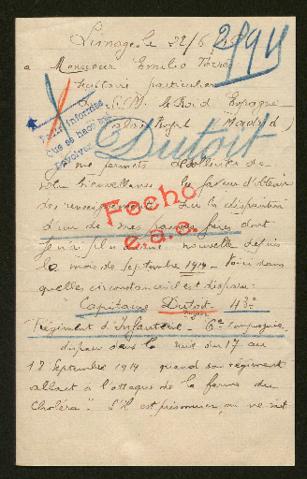 Limoges, le 22/6
a Monsieur Emilio Torrès
secrétaire particulier
de S. M. le Roi d'Espagne
Palais Royal Madrid
Pedir informes
Que se hacen
devolver
Dutoit
Je me permets de
votre bienveillance la faveur d'obtenir
des renseignements sur la disparition
d'un de mes pauvres frères dont
je n'ai plus aucune nouvelle depuis
le mois de Septembre 1914 - Voici dans
quelles circonstances il est disparu:
Focho
e.a.c.
Capitaine Dutoit - 43e
Régiment d'Infanterie - 6e compagnie
disparu dans la nuit du 17 au
18 Septembre 1914 quand son régiment
allait à l'attaque de la ferme du
Choléra". S'il est prisonnier, on ne sait